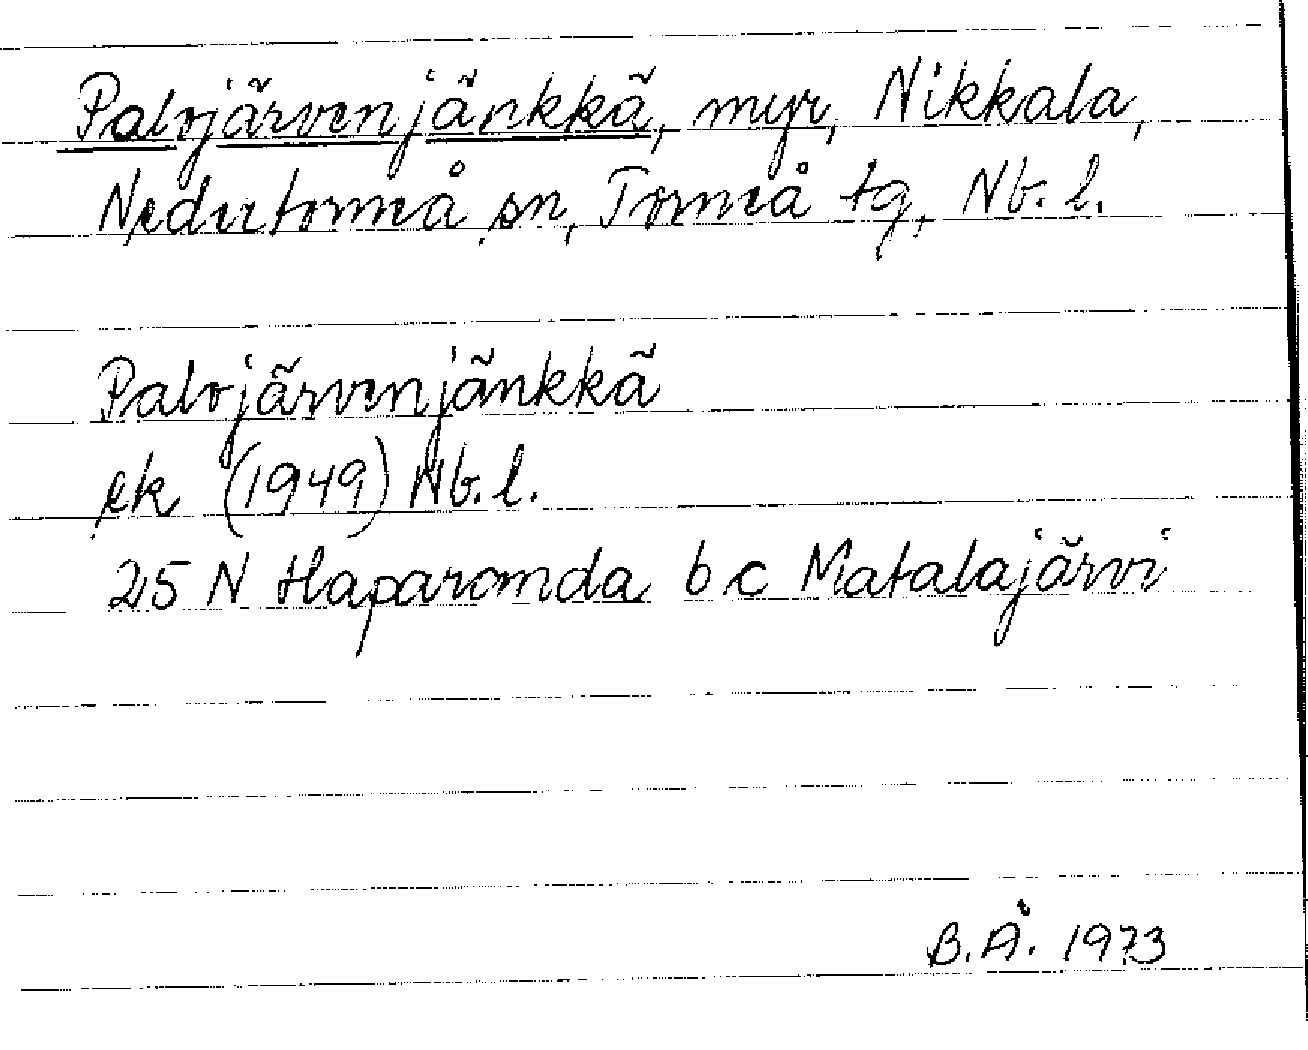 Palojärvenjänkkä, myr, Nikkala,
Nedertorneå sn, Torneå tg, Nb. l.
Palojärvenjänkkä
ek (1949) Nb. l.
25 N Haparanda b c Matalajärvi
B.Å. 1973